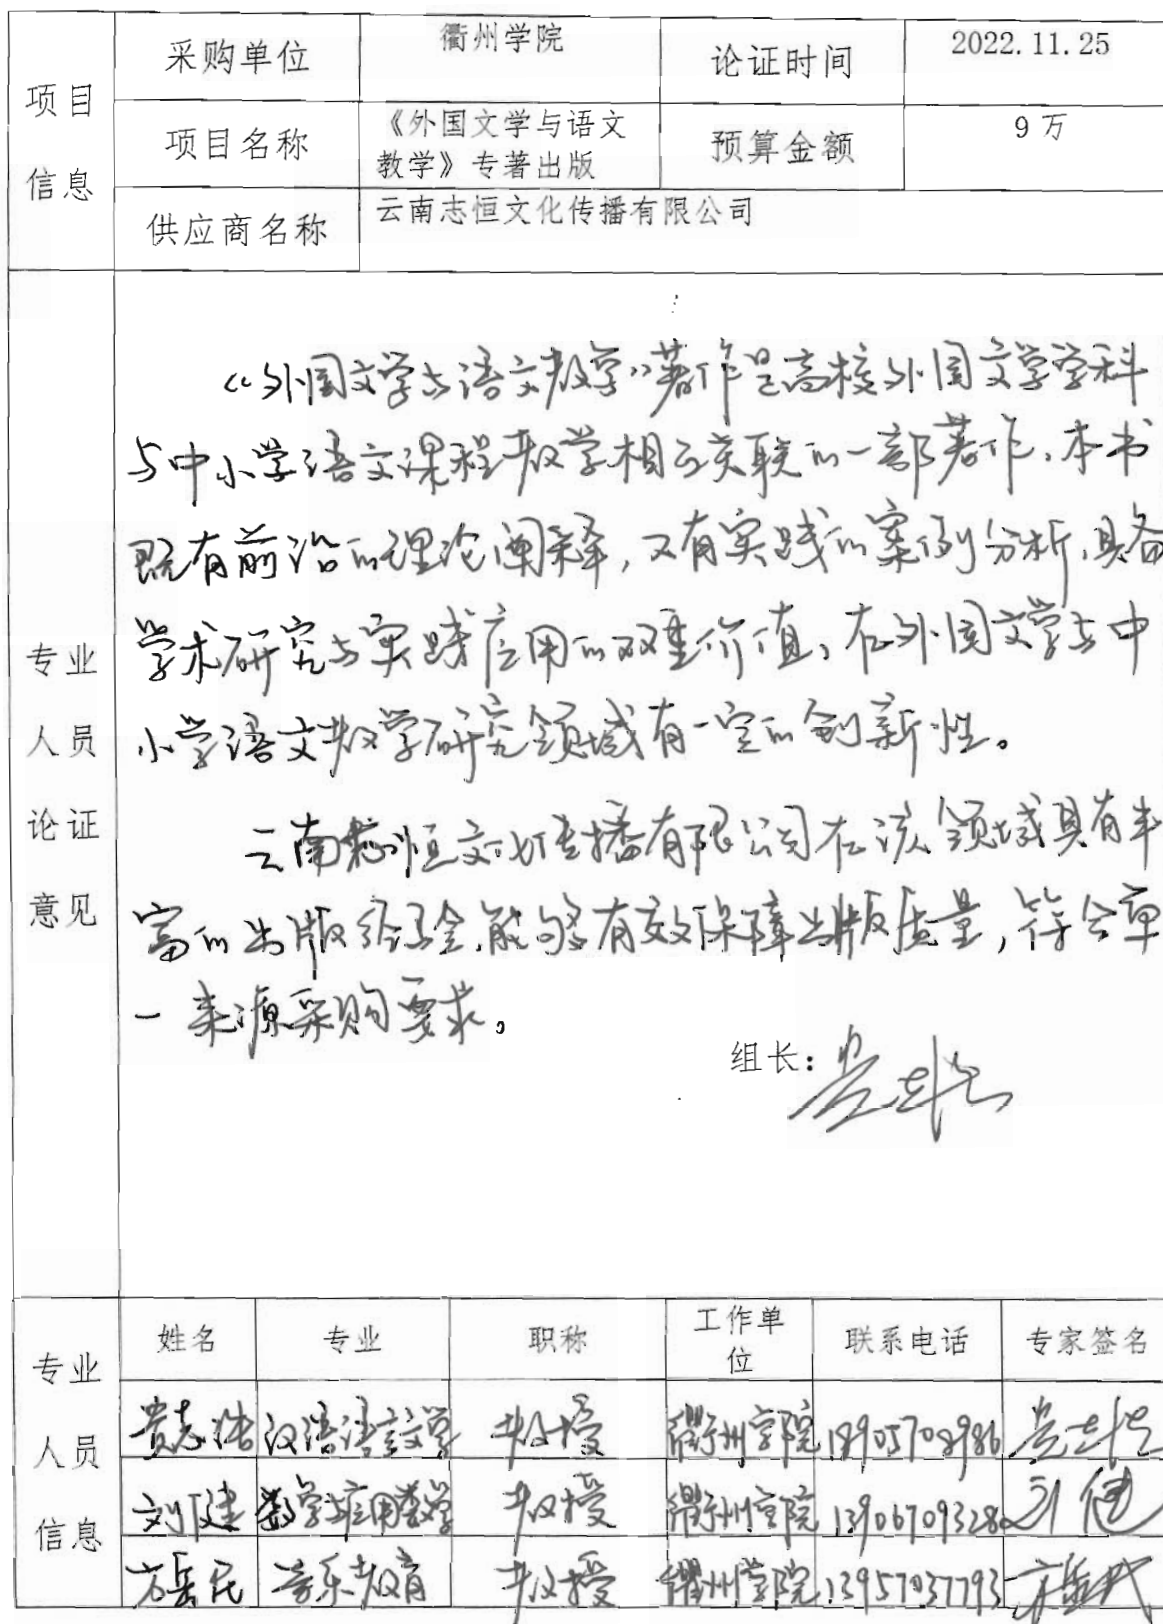 采购单位 衢州学院 论证时间 2022.11.25
项目
信息
项目名称 《外国文学与语文
教学》专著出版 预算金额 9万
供应商名称 云南志恒文化传播有限公司
专业
人员
论证
意见
《外国文学与语文教学》著作是高校外国文学学科
与中小学语文课程教学相互关联的一部著作,本书
既有前沿的理论阐释,又有实践的案例分析,具备
学术研究与实践应用的双重价值,在外国文学与中
小学语文教学研究领域有一定的创新性。
云南志恒文化传播有限公司在该领域具有丰
富的出版经验,能够有效保障出版质量,符合单
一来源采购要求。
组长:
专业
人员
信息
姓名 专业 职称 工作单
位 联系电话 专家签名
贵志浩 汉语语言文学 教授 衢州学院
刘健 数学与应用数学 教授 衢州学院 刘健
方岳民 音乐教育 教授 衢州学院 13957037793